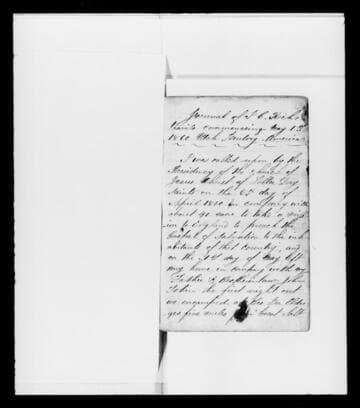 Journal of J. C. Rich
commencing May 1st
1860 Utah Teritory America
I was called upon by the
Presidency of the Church of
Jesus Christ of Latter Day
Saints on the 6th day of
April 1860 in company with
about 40 more to take a miss
ion to England to preach the
Gospel of Salvation to the inh
abitants of that Country, and
on the day of May left
my home in company with my
Father & Brother in law John
Tobin the first night out
we encamped at
five miles from Great Salt